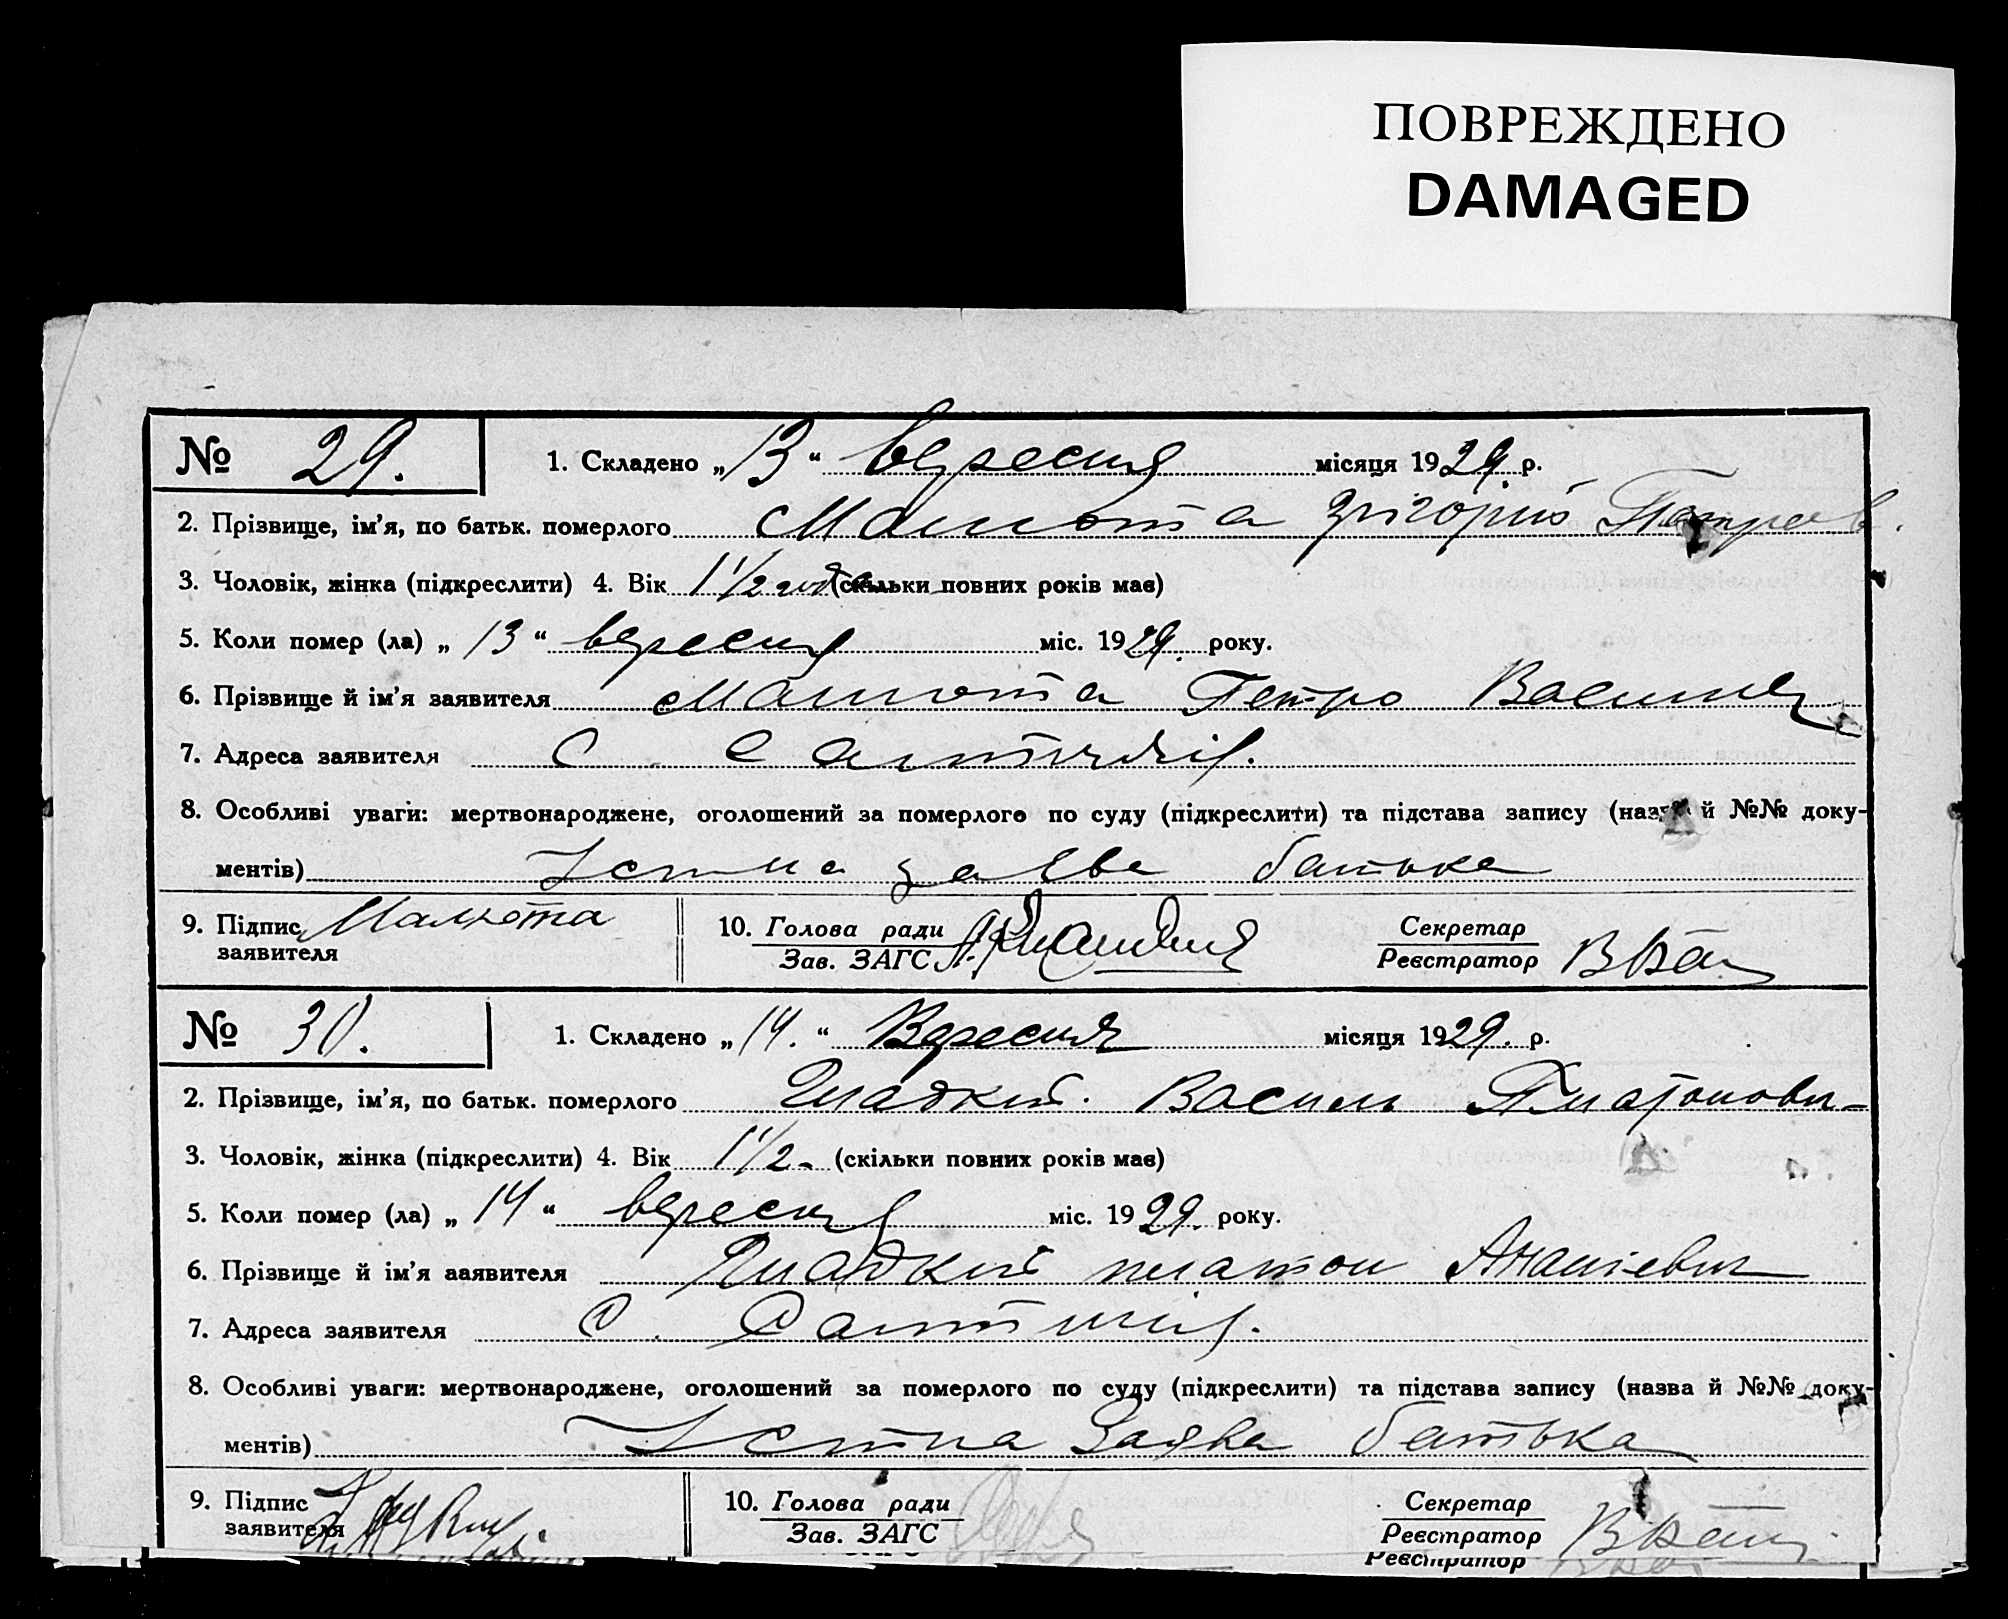 ПОВРЕЖДЕНО
DAMAGED
№ 29. 1. Складено „13“ вересня місяця 1929 р.
2. Прізвище, ім’я, по батьк. померлого Малюта Григорій Петров.
3. Чоловік, жінка (підкреслити) 4. Вік 1 1/2 года (скільки повних років має)
5. Коли помер (ла) „13“ вересня міс. 1929. року.
6. Прізвище й ім’я заявителя Малюта Петро Василев
7. Адреса заявителя С.
8. Особливі уваги: мертвонароджене, оголошений за померлого по суду (підкреслити) та підстава запису (назва й №№ доку-
ментів) Устна заява батька
9. Підпис заявителя Малюта 10. Голова ради Зав. ЗАГС Секретар Реєстратор
№ 30. 1. Складено „14.“ Вересня місяця 1929. р.
2. Прізвище, ім’я, по батьк. померлого Гладкий. Василь Платонович
3. Чоловік, жінка (підкреслити) 4. Вік 1 1/2 - (скільки повних років має)
5. Коли помер (ла) „14“ вересня міс. 1929. року.
6. Прізвище й ім’я ааявителя Гладкий платон Ананієвич
7. Адреса заявителя С.
8. Особливі уваги: мертвонароджене, оголошений за померлого по суду (підкреслити) та підстава запису (назва й №№ доку-
ментів) Устна Заява батька
9. Підпис заявителя 10. Голова ради Зав. ЗАГС Секретар Реєстратор
Реєстратор